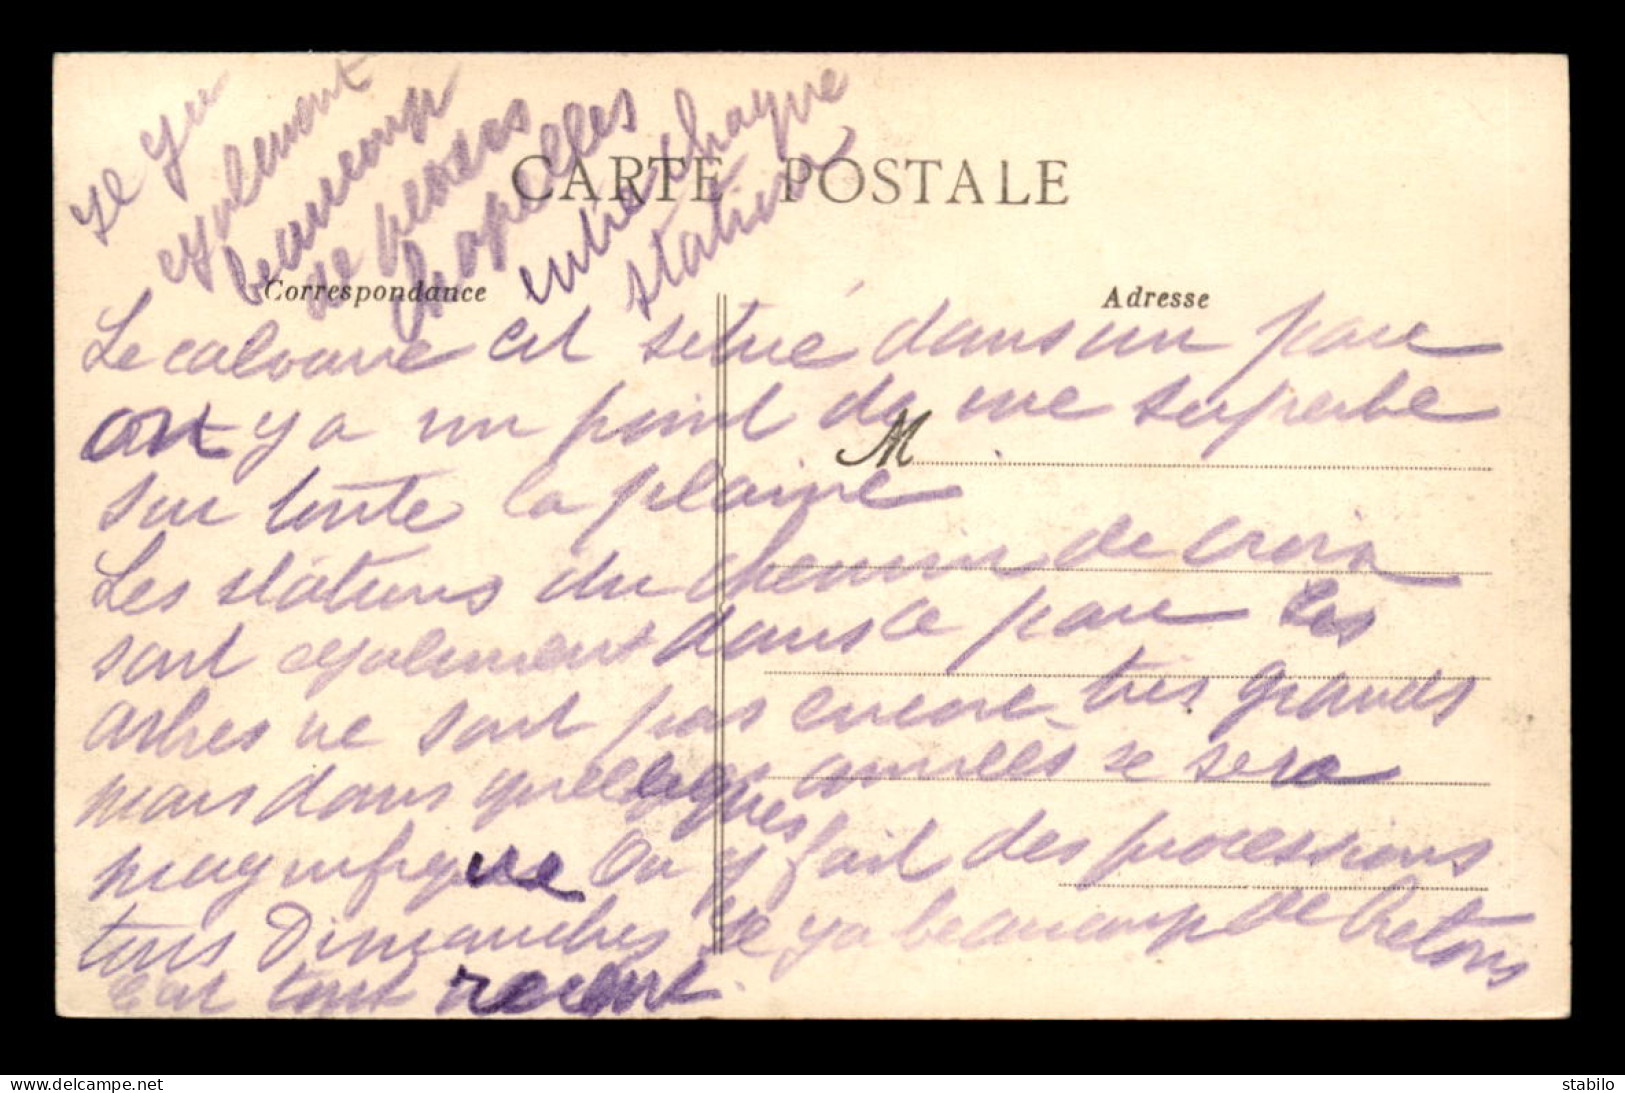 se y a
egalement
beaucoup
de petites
chapelles
entre chaque
station
CARTE POSTALE
Correspondance
Adresse
Le calvaire est situé dans un parc
ont y a un point de vue superbe
M
sur toute la plaine
Les stations du chemin de croix
sont egalement dans le parc Les
arbres ne sont pas encore très grands
mais dans quelques années se sera
magnifique On y fait des processions
tous Dimanches se y a beaucoup de Bretons
c'est tout recent.
delcampe.net
stabilo